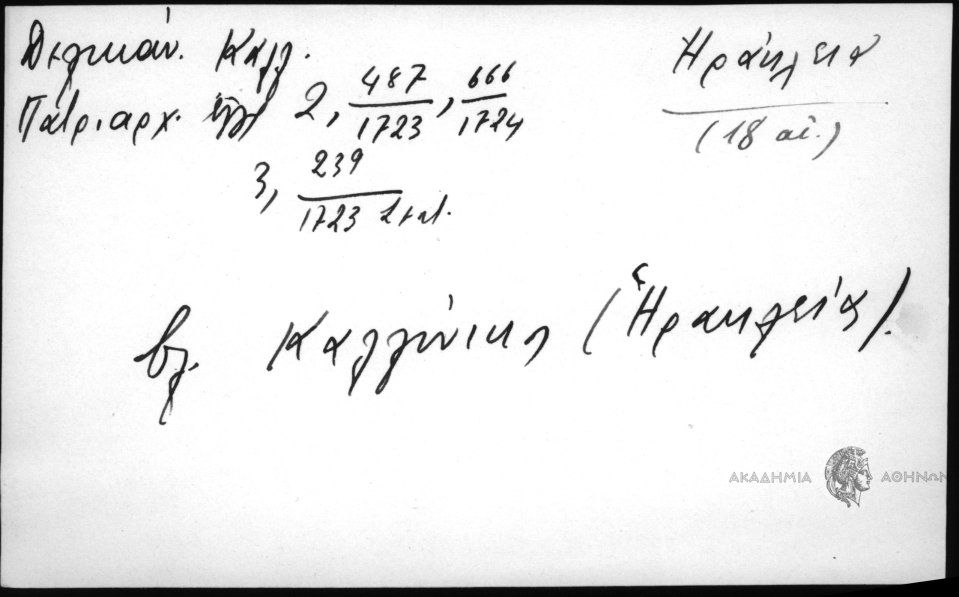 Δελικάν. Καλλ.
Πατριαρχ. ἔγγρ 2, 487/1723, 666/1724
3, 239/1723
Ἡράκλεια
(18 αἰ.)
βλ. Καλλίνικος (Ἡρακλείας).
ΑΚΑΔΗΜΙΑ ΑΘΗΝΩΝ